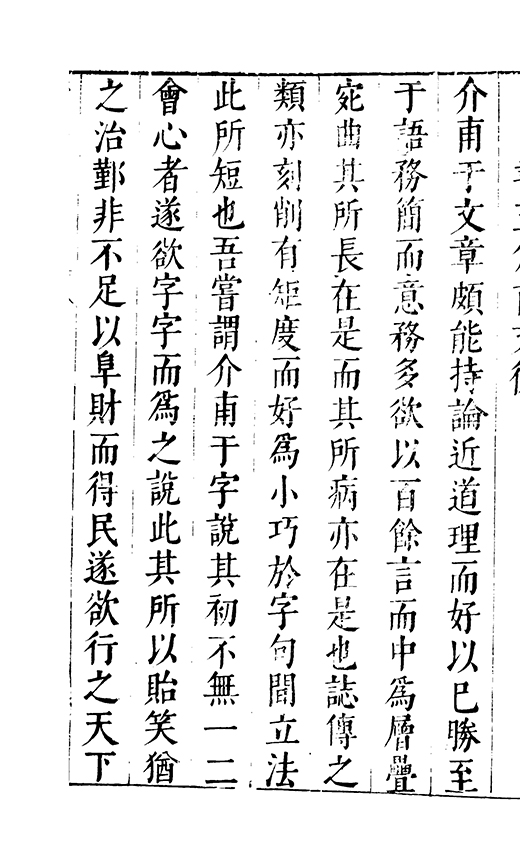 介甫于文章頗能持論近道理而好以已勝至
于語務簡而意務多欲以百餘言而中爲層疊
宛曲其所長在是而其所病亦在是也誌傳之
類亦刻削有矩度而好爲小巧於字句間立法
此所短也吾嘗謂介甫于字說其初不無一二
會心者遂欲字字而爲之說此其所以貽笑猶
之治鄞非不足以阜財而得民遂欲行之天下